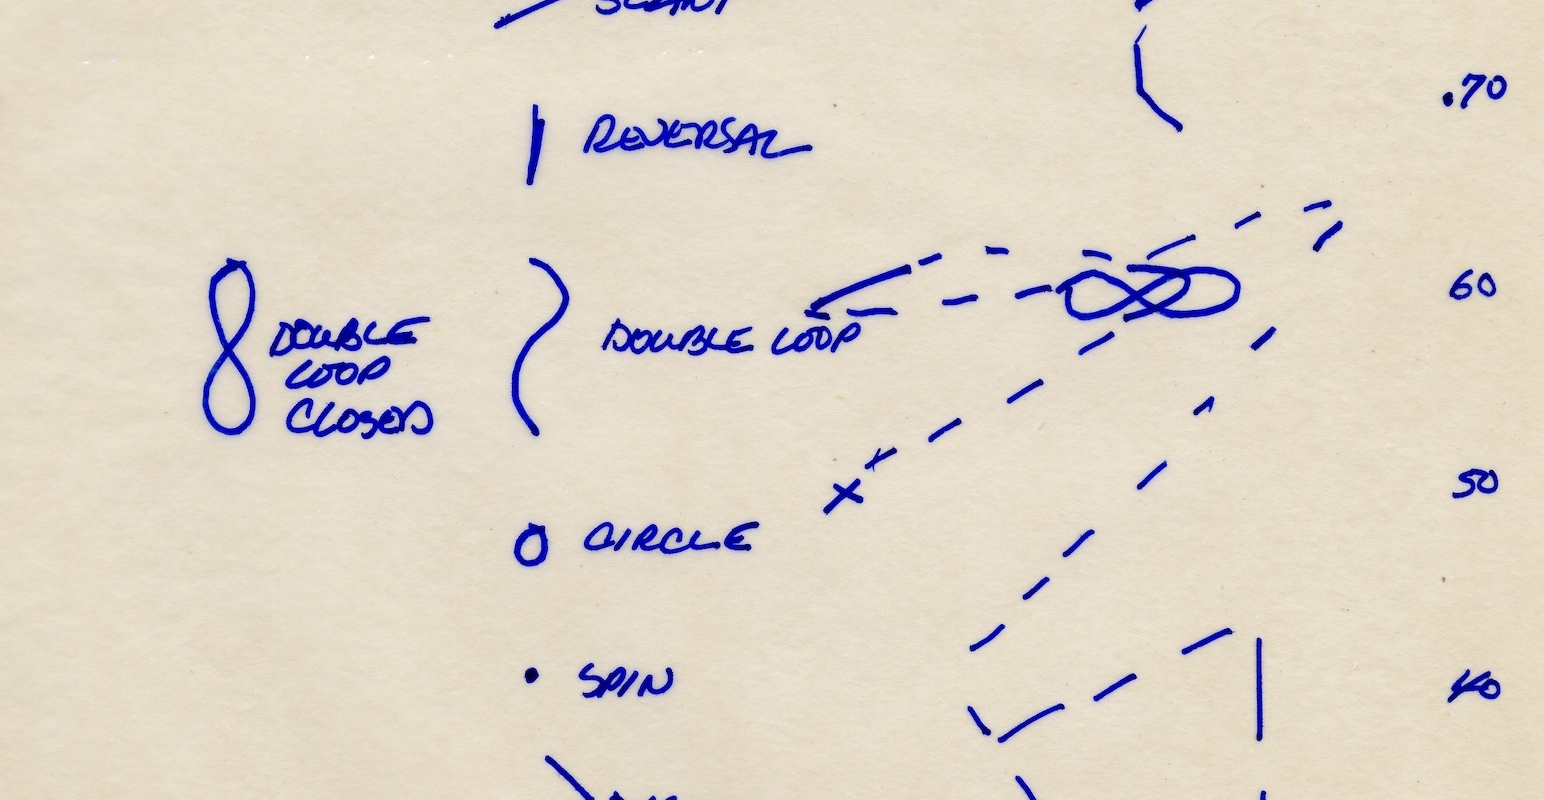 REVERSAL
DOUBLE
LOOP
CLOSED
DOUBLE LOOP
CIRCLE
SPIN
.70
60
50
40